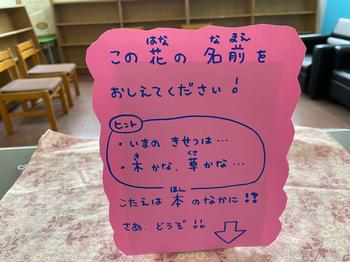 この花の名前を
はな なまえ
おしえてください!
ヒント
・いまの きせつは…
・木かな、草かな…
き くさ
こたえは 本 のなかに!?
ほん
さあ、どうぞ!!